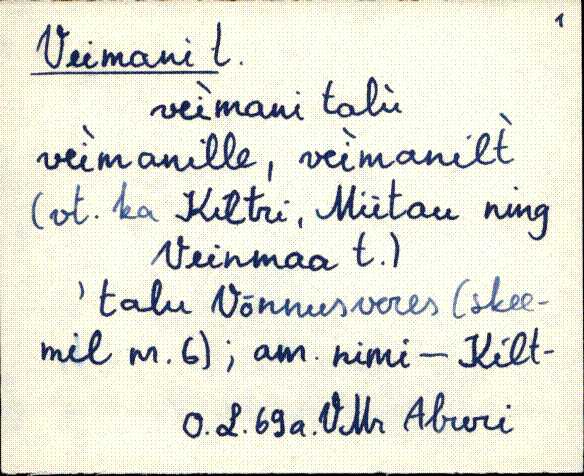 1
Veimani t.
veìmani talù
veìmanille, veìmanilt̀
(vt. ka Kiltri, Miitau ning
Veinmaa t.)
'talu Võnnusveres (skee-
mil nr. 6); am. nimi — Kilt-
O.L. 69a. VMr Aburi